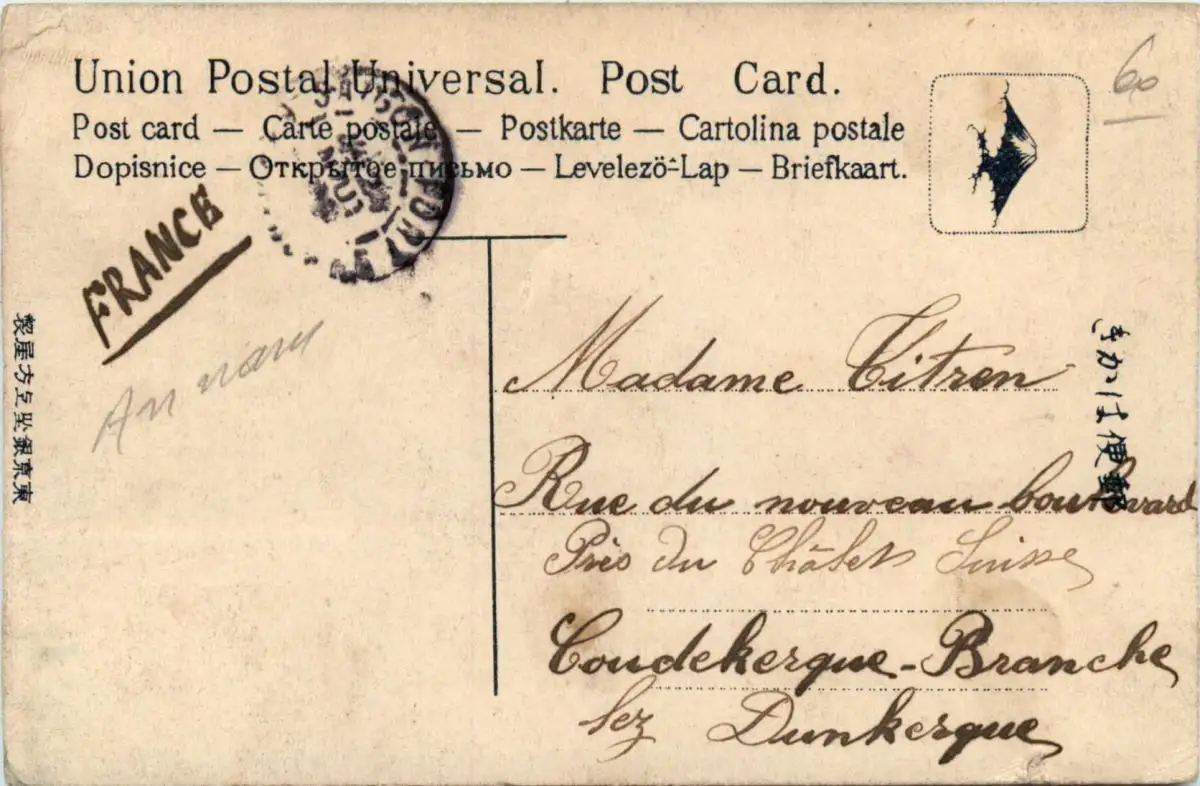 Union Postal Universal. Post Card.
Post card — Carte postale — Postkarte — Cartolina postale
Dopisnice — Открытое письмо — Levelező-Lap — Briefkaart.
60
SAIGON PORT
FRANCE
Annam
きかは便郵
Madame Titren
Rue du nouveau boulevard
Près du Châlets Suisse
Coudekerque-Branche
lez Dunkerque